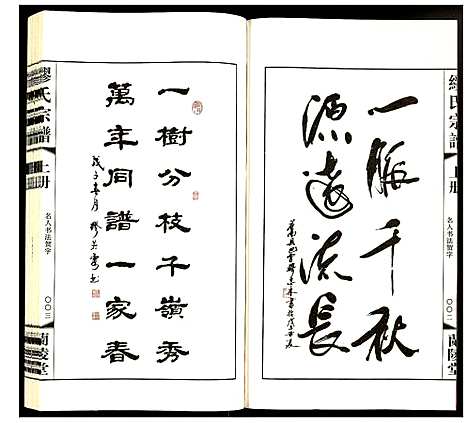 繆氏宗譜
上册
名人书法贺字
〇〇二
蘭陵堂
一脈千秋
源遠流長
一樹分枝千嶺秀
萬年同譜一家春
戊子春月
繆氏宗譜
上册
名人书法贺字
〇〇三
蘭陵堂